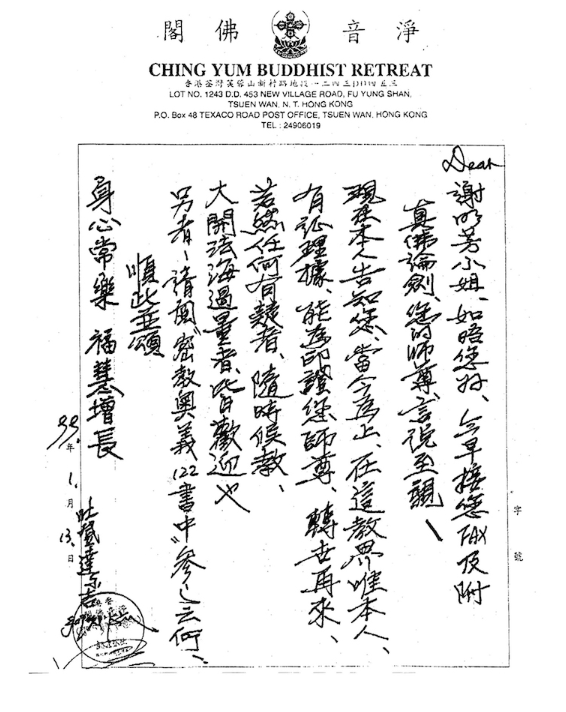 淨音佛閣
CHING YUM BUDDHIST RETREAT
香港荃灣芙蓉山新村路地段一二四三DD四五三
LOT NO. 1243 D.D. 453 NEW VILLAGE ROAD, FU YUNG SHAN,
TSUEN WAN, N. T. HONG KONG
P.O. Box 48 TEXACO ROAD POST OFFICE, TSUEN WAN, HONG KONG
TEL : 24906019
字號
Dear 謝明芳小姐、如晤您好、今早接您FAX及附
真佛論劍、您的師尊、言説至
現在本人告知您、當今為止、在這教界唯本人、
有証理據、能為印證您師尊、轉世再來、
若然任何有疑者、隨時候教、
大開法海過量者、皆日歡迎也
另者、請閱"密教奧義122書中"參之云何、
順此並頌
身心常樂 福慧增長
99.年1.月13.日
吐登達尔吉